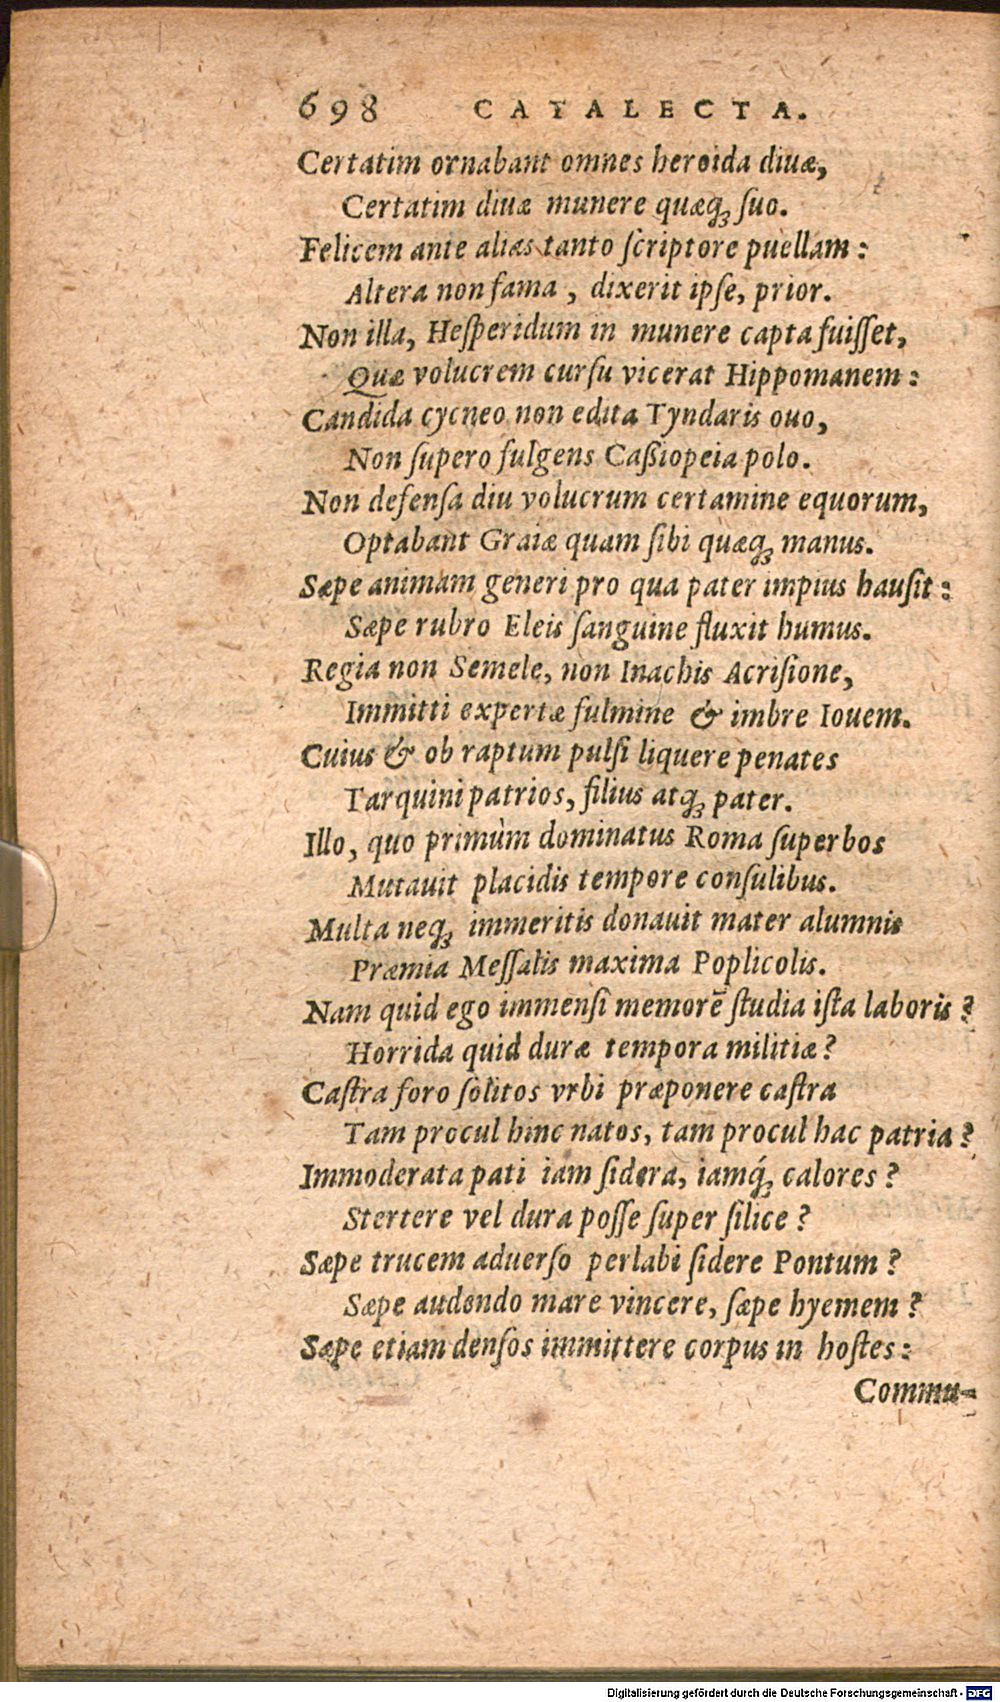 698 CATALECTA.
Certatim ornabant omnes heroida diuæ,
Certatim diuæ munere quæq; ſuo.
Felicem ante alias tanto ſcriptore puellam:
Altera non fama, dixerit ipſe, prior.
Non illa, Heſperidum in munere capta fuiſſet,
Quæ volucrem curſu vicerat Hippomanem:
Candida cycneo non edita Tyndaris ouo,
Non ſupero fulgens Caßiopeia polo.
Non defenſa diu volucrum certamine equorum,
Optabant Graiæ quam ſibi quæq; manus.
Sæpe animam generi pro qua pater impius hauſit:
Sæpe rubro Eleis ſanguine fluxit humus.
Regia non Semele, non Inachis Acriſione,
Immitti expertæ fulmine & imbre Iouem.
Cuius & ob raptum pulſi liquere penates
Tarquini patrios, filius atq; pater.
Illo, quo primùm dominatus Roma ſuperbos
Mutauit placidis tempore conſulibus.
Multa neq; immeritis donauit mater alumnis
Præmia Meſſalis maxima Poplicolis.
Nam quid ego immenſi memorē ſtudia iſta laboris?
Horrida quid duræ tempora militiæ?
Caſtra foro ſolitos vrbi præponere caſtra
Tam procul hinc natos, tam procul hac patria?
Immoderata pati iam ſidera, iamq́; calores?
Stertere vel dura poſſe ſuper ſilice?
Sæpe trucem aduerſo perlabi ſidere Pontum?
Sæpe audendo mare vincere, ſæpe hyemem?
Sæpe etiam denſos immittere corpus in hoſtes:
Commu-
Digitalisierung gefördert durch die Deutsche Forschungsgemeinschaft - DFG